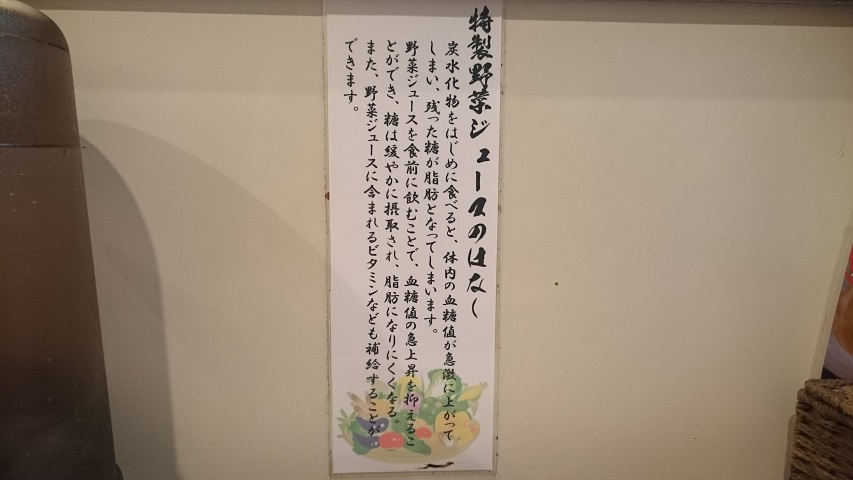 特製野菜ジュースのはなし
炭水化物をはじめに食べると、体内の血糖値が急激に上がって
しまい、残った糖が脂肪となってしまいます。
野菜ジュースを食前に飲むことで、血糖値の急上昇を抑えるこ
とができ、糖は緩やかに摂取され、脂肪になりにくくなる。
また、野菜ジュースに含まれるビタミンなども補給することが
できます。